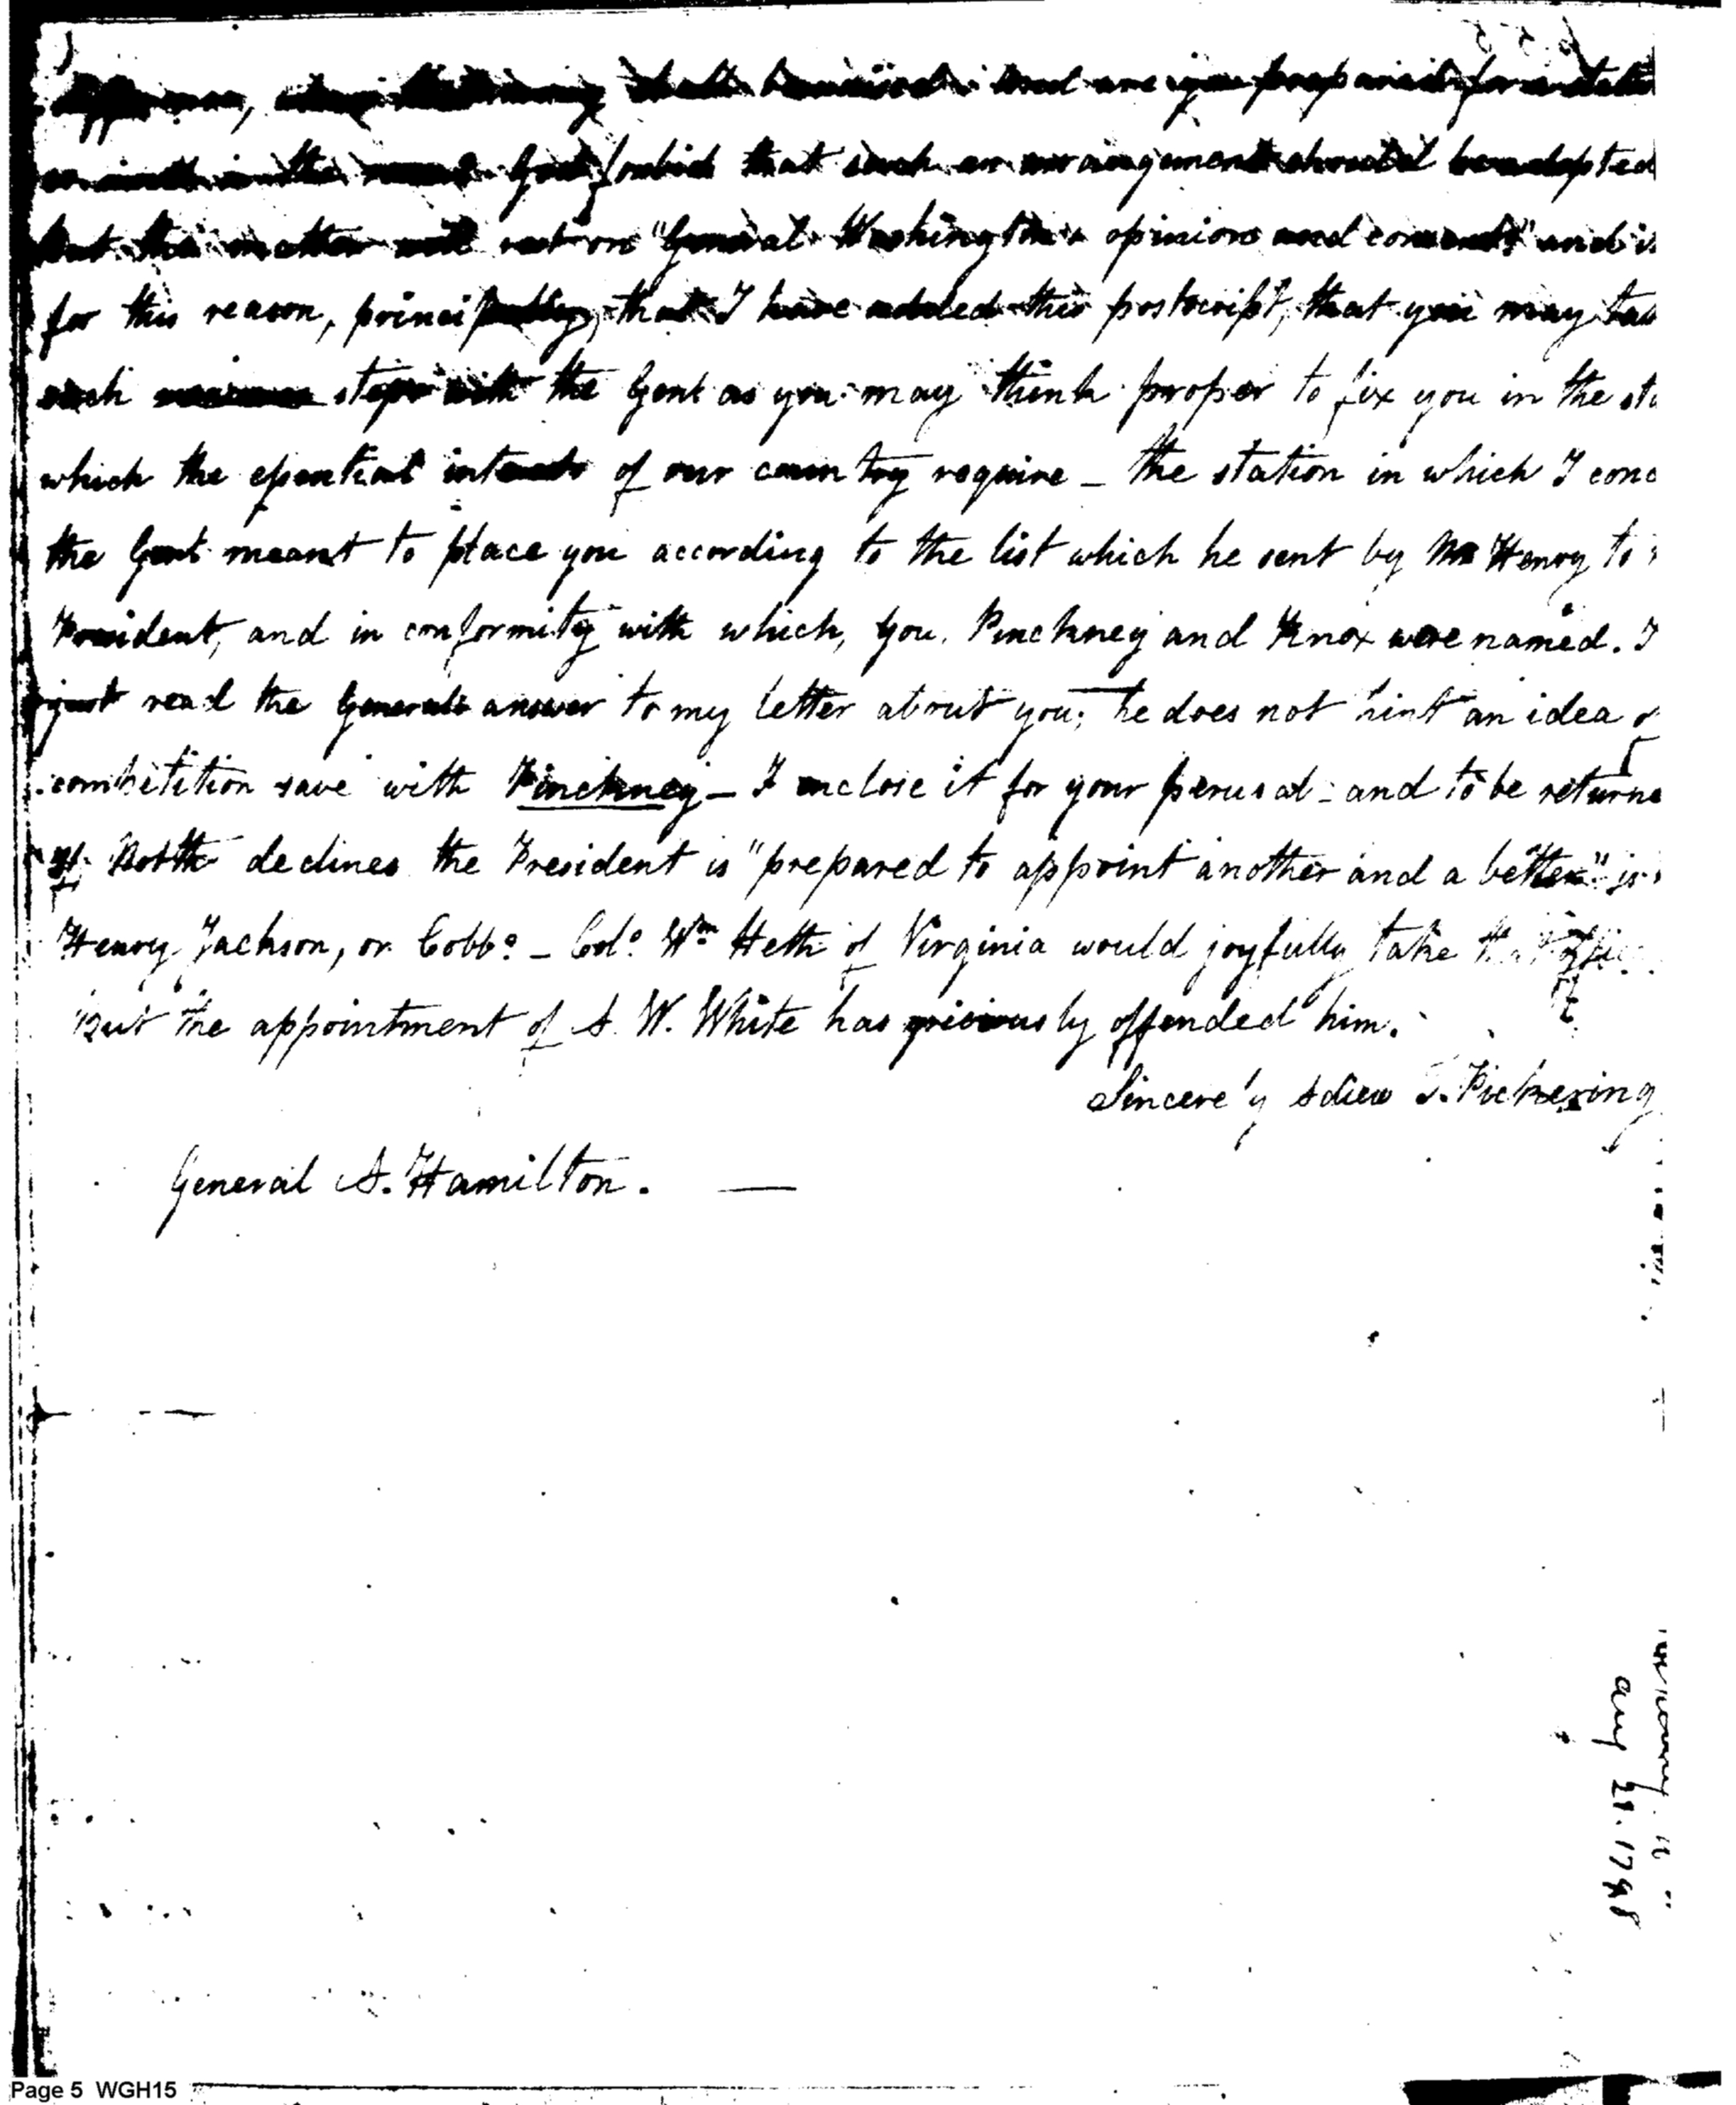 are you prepared for
God forbid that such an arrangement should be adopted
But the matter will rest on "General Washington's opinion and consent" and is
for this reason, principally, that I have added this postscript, that you may
such steps with the Genl as you may think proper to fix you in the
which the essential interests of our country require – the station in which I
the Genl meant to place you according to the list which he sent by Mr Henry to
President, and in conformity with which, you, Pinckney and Knox were named. I
just read the Generals answer to my letter about you; he does not hint an idea of
competition save with Pinckney – I enclose it for your perusal – and to be returne
If North declines the President is "prepared to appoint another and a better"
Henry Jackson, or Cobb. – Colo. Wm Heth of Virginia would joyfully take that office
But the appointment of A. W. White has grievously offended him.
Sincerely Adieu T. Pickering
General A. Hamilton. —
Aug 21. 1798
Page 5 WGH15